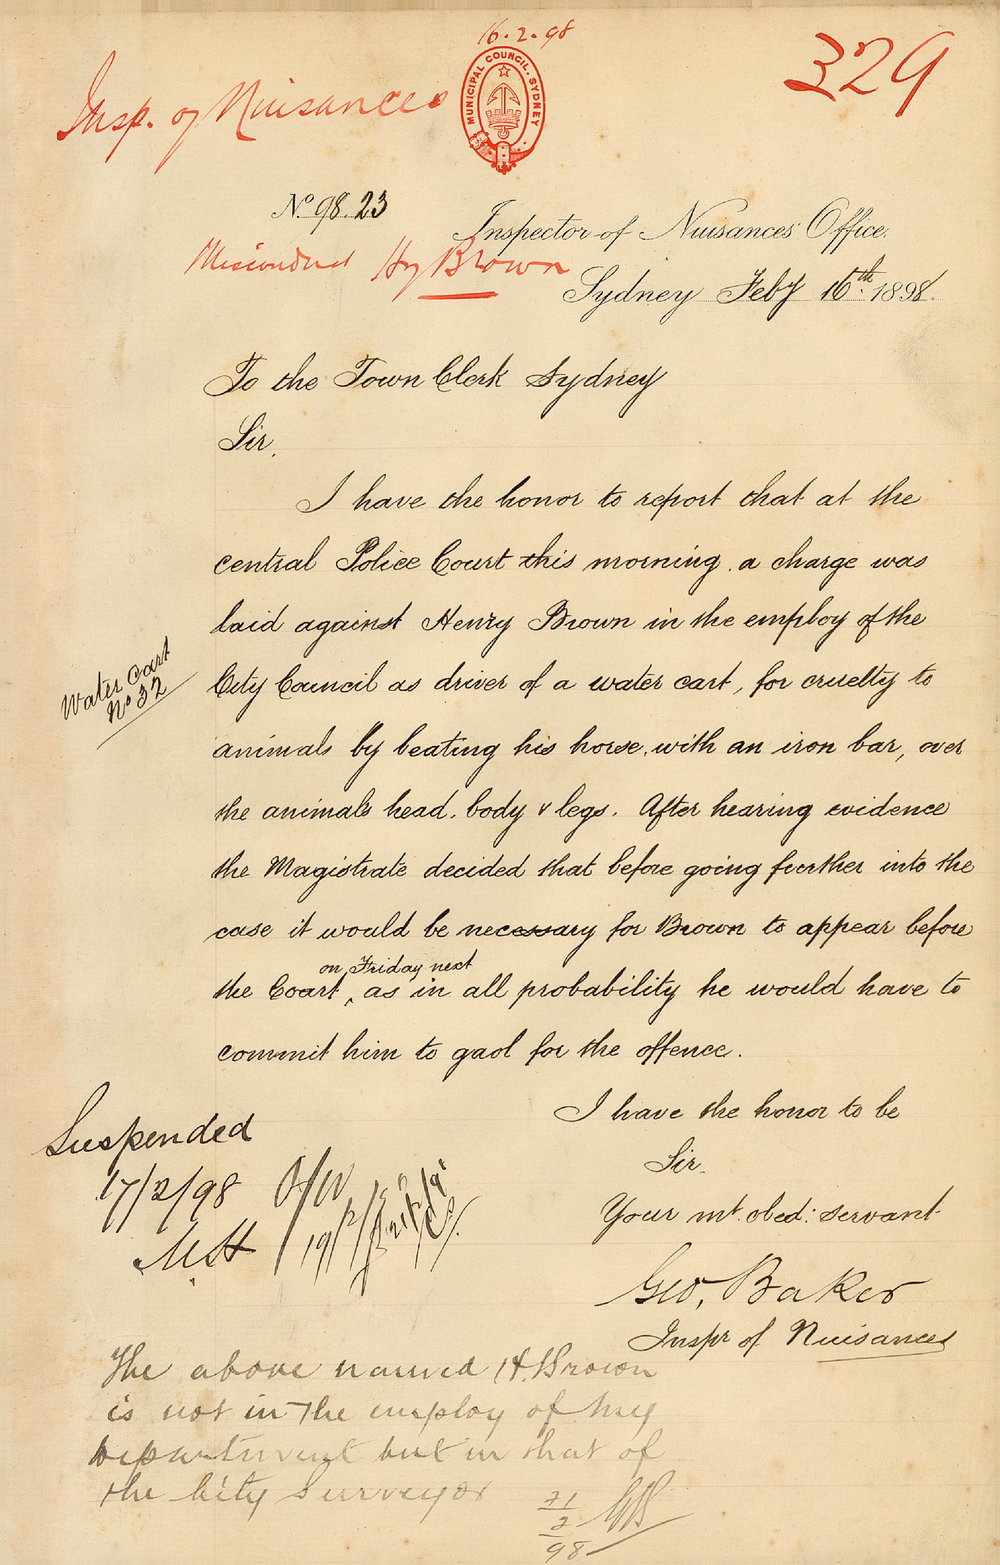 16.2.98
329
Insp. of Nuisances
MUNICIPAL COUNCIL. SYDNEY
No. 98.23
Inspector of Nuisances Office,
Misconduct Hy Brown
Sydney Feby 16th. 1898.
To the Town Clerk Sydney
Sir,
I have the honor to report that at the
central Police Court this morning. a charge was
laid against Henry Brown in the employ of the
Water Cart
No 32
City Council as driver of a water cart, for cruelty to
animals by beating his horse, with an iron bar, over
the animals head, body & legs. After hearing evidence
the Magistrate decided that before going further into the
case it would be necessary for Brown to appear before
on Friday next
the Court, as in all probability he would have to
commit him to gaol for the offence.
I have the honor to be
Sir.
Your mt. obed: servant
Geo. Baker
Inspr of Nuisances
Suspended
17/2/98
19/2/
21/2/9
The above named H. Brown
is not in the employ of my
Department but in that of
the City Surveyor
21
2
98
GB